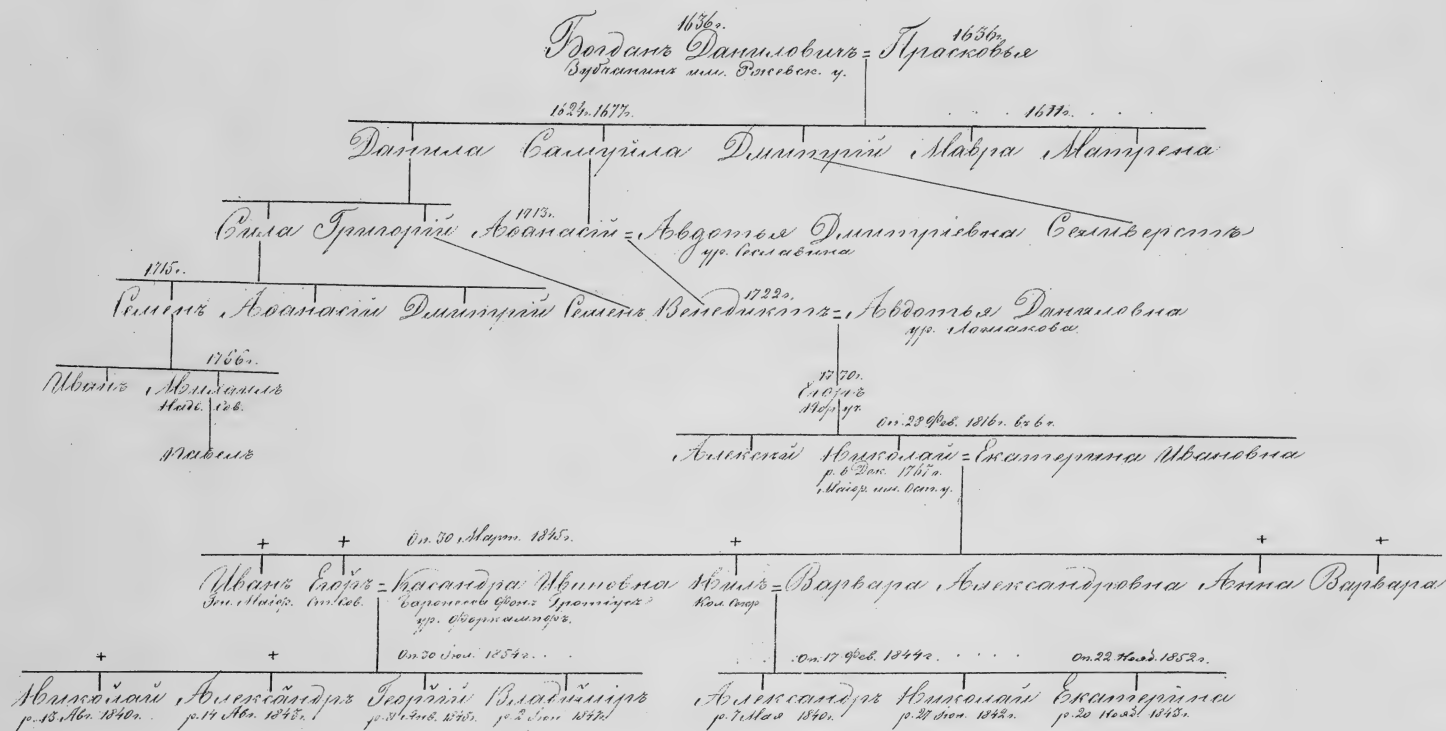 1636г. 1636г.
Богданъ Даниловичъ = Прасковья
Зубчанинъ им. Ржевск. у.
1624г. 1677г. 1677г.
Данила Самуйла Дмитрій Мавра Матрена
1713г.
Сила Григорій Аѳанасій = Авдотья Дмитріевна Селиверстъ
ур. Сеславина
1715г. 1722г.
Семенъ Аѳанасій Дмитрій Семенъ Венедиктъ = Авдотья Даниловна
ур. Ломакова
1766г.
Иванъ Михаилъ
Надв. Сов.
1770г.
Егоръ
Павелъ
Оп. 23 Фев. 1816г. въ 6 ч.
Алексѣй Николай = Екатерина Ивановна
р. 6 Дек. 1767г.
Маіор. им. Ост. у.
+ + Оп. 30 Март. 1845г. + + +
Иванъ Егоръ = Касандра Ивановна Нилъ = Варвара Александровна Анна Варвара
Ген. Маіор. Ст. Сов. Баронесса Фонъ Гротгусъ Кол. Секр
+ + Оп. 30 Іюл. 1854г. Оп. 17 Фев. 1844г. Оп. 22 Нояб. 1852г.
Николай Александръ Георгій Владиміръ Александръ Николай Екатерина
р. 13 Авг. 1840г. р. 14 Авг. р. Янв. 1845г. р. 2 Іюн 1847г. р. 7 Мая 1840г. р. 27 Іюн. 1842г. р. 20 Нояб. 1843г.